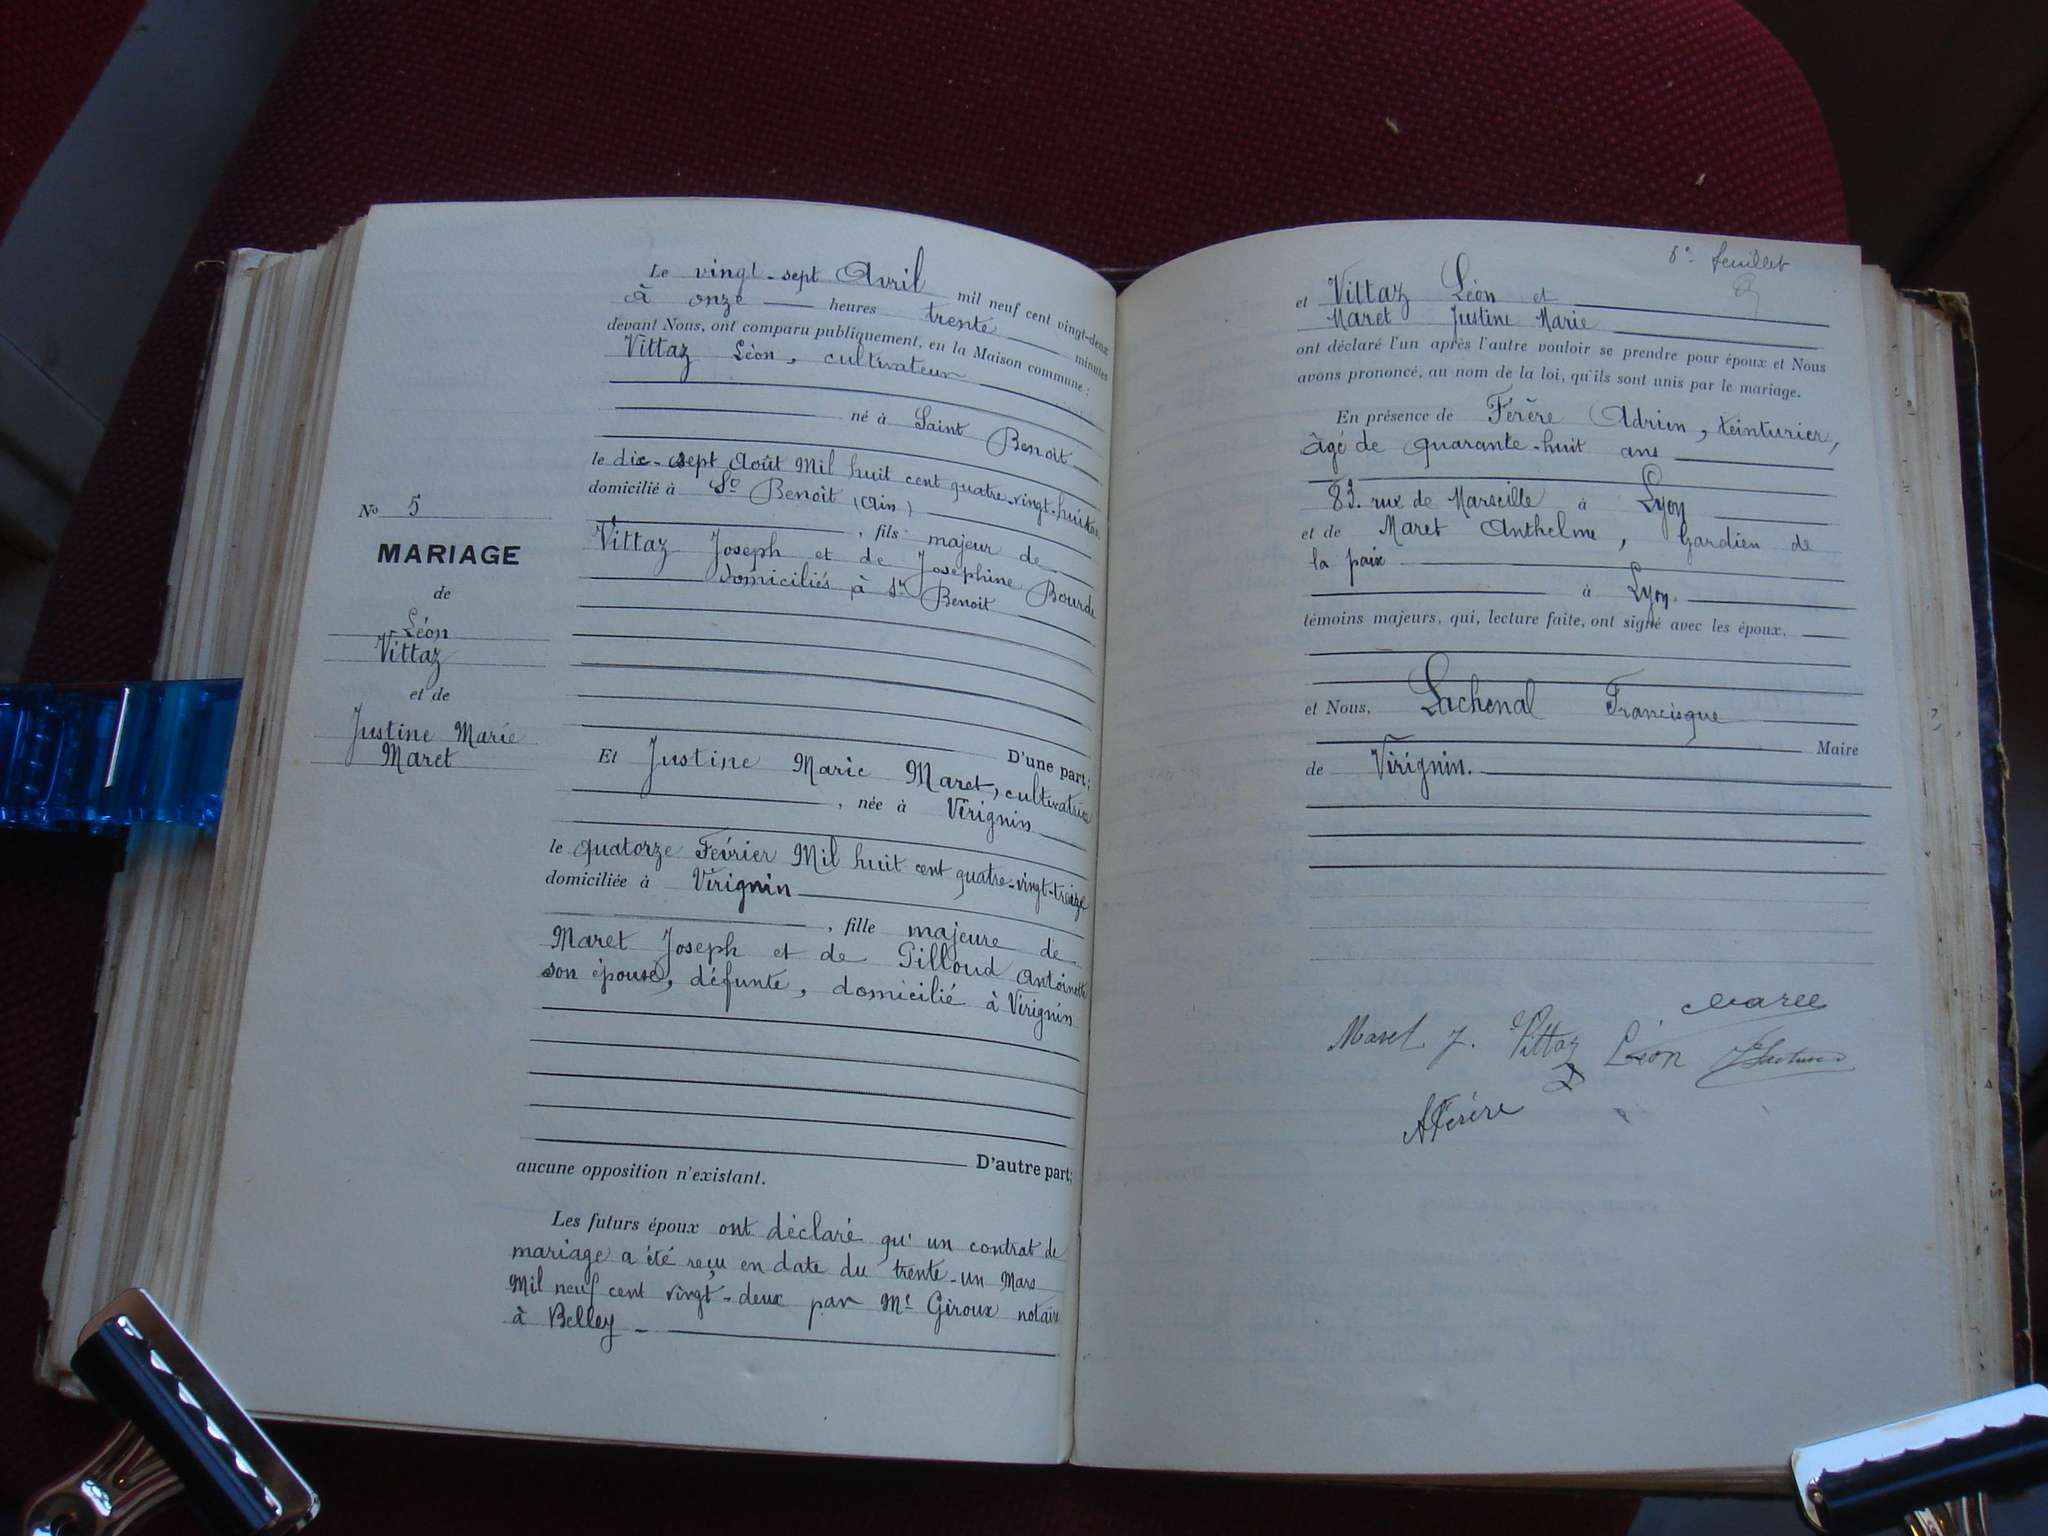 Le vingt-sept Avril mil neuf cent vingt-deux
à onze heures trente minutes
devant Nous, ont comparu publiquement, en la Maison commune :
Vittaz Léon, cultivateur
né à Saint Benoit
le dix-sept Août Mil huit cent quatre-vingt-huit
domicilié à St Benoit (Ain)
, fils majeur de
Vittaz Joseph et de Josephine Bourde
domiciliés à St Benoit
No 5
MARIAGE
de
Léon
Vittaz
et de
Justine Marie
Maret
D'une part;
Et Justine Marie Maret, cultivatrice
, née à Virignin
le quatorze Février Mil huit cent quatre-vingt-treize
domiciliée à Virignin
, fille majeure de
Maret Joseph et de Pilloud Antoinette
son épouse, défunte, domicilié à Virignin
D'autre part;
aucune opposition n'existant.
Les futurs époux ont déclaré qu'un contrat de
mariage a été reçu en date du trente-un Mars
Mil neuf cent vingt-deux par Me Giroux notaire
à Belley
5e feuillet
et Vittaz Léon et
Maret Justine Marie
ont déclaré l'un après l'autre vouloir se prendre pour époux et Nous
avons prononcé, au nom de la loi, qu'ils sont unis par le mariage.
En présence de Férère Adrien, teinturier,
âgé de quarante-huit ans
83. rue de Marseille à Lyon
et de Maret Anthelme, Gardien de
la paix
à Lyon.
témoins majeurs, qui, lecture faite, ont signé avec les époux,
et Nous, Lachenal Francisque
Maire
de Virignin.
Maret J. Vittaz Léon
A Férère